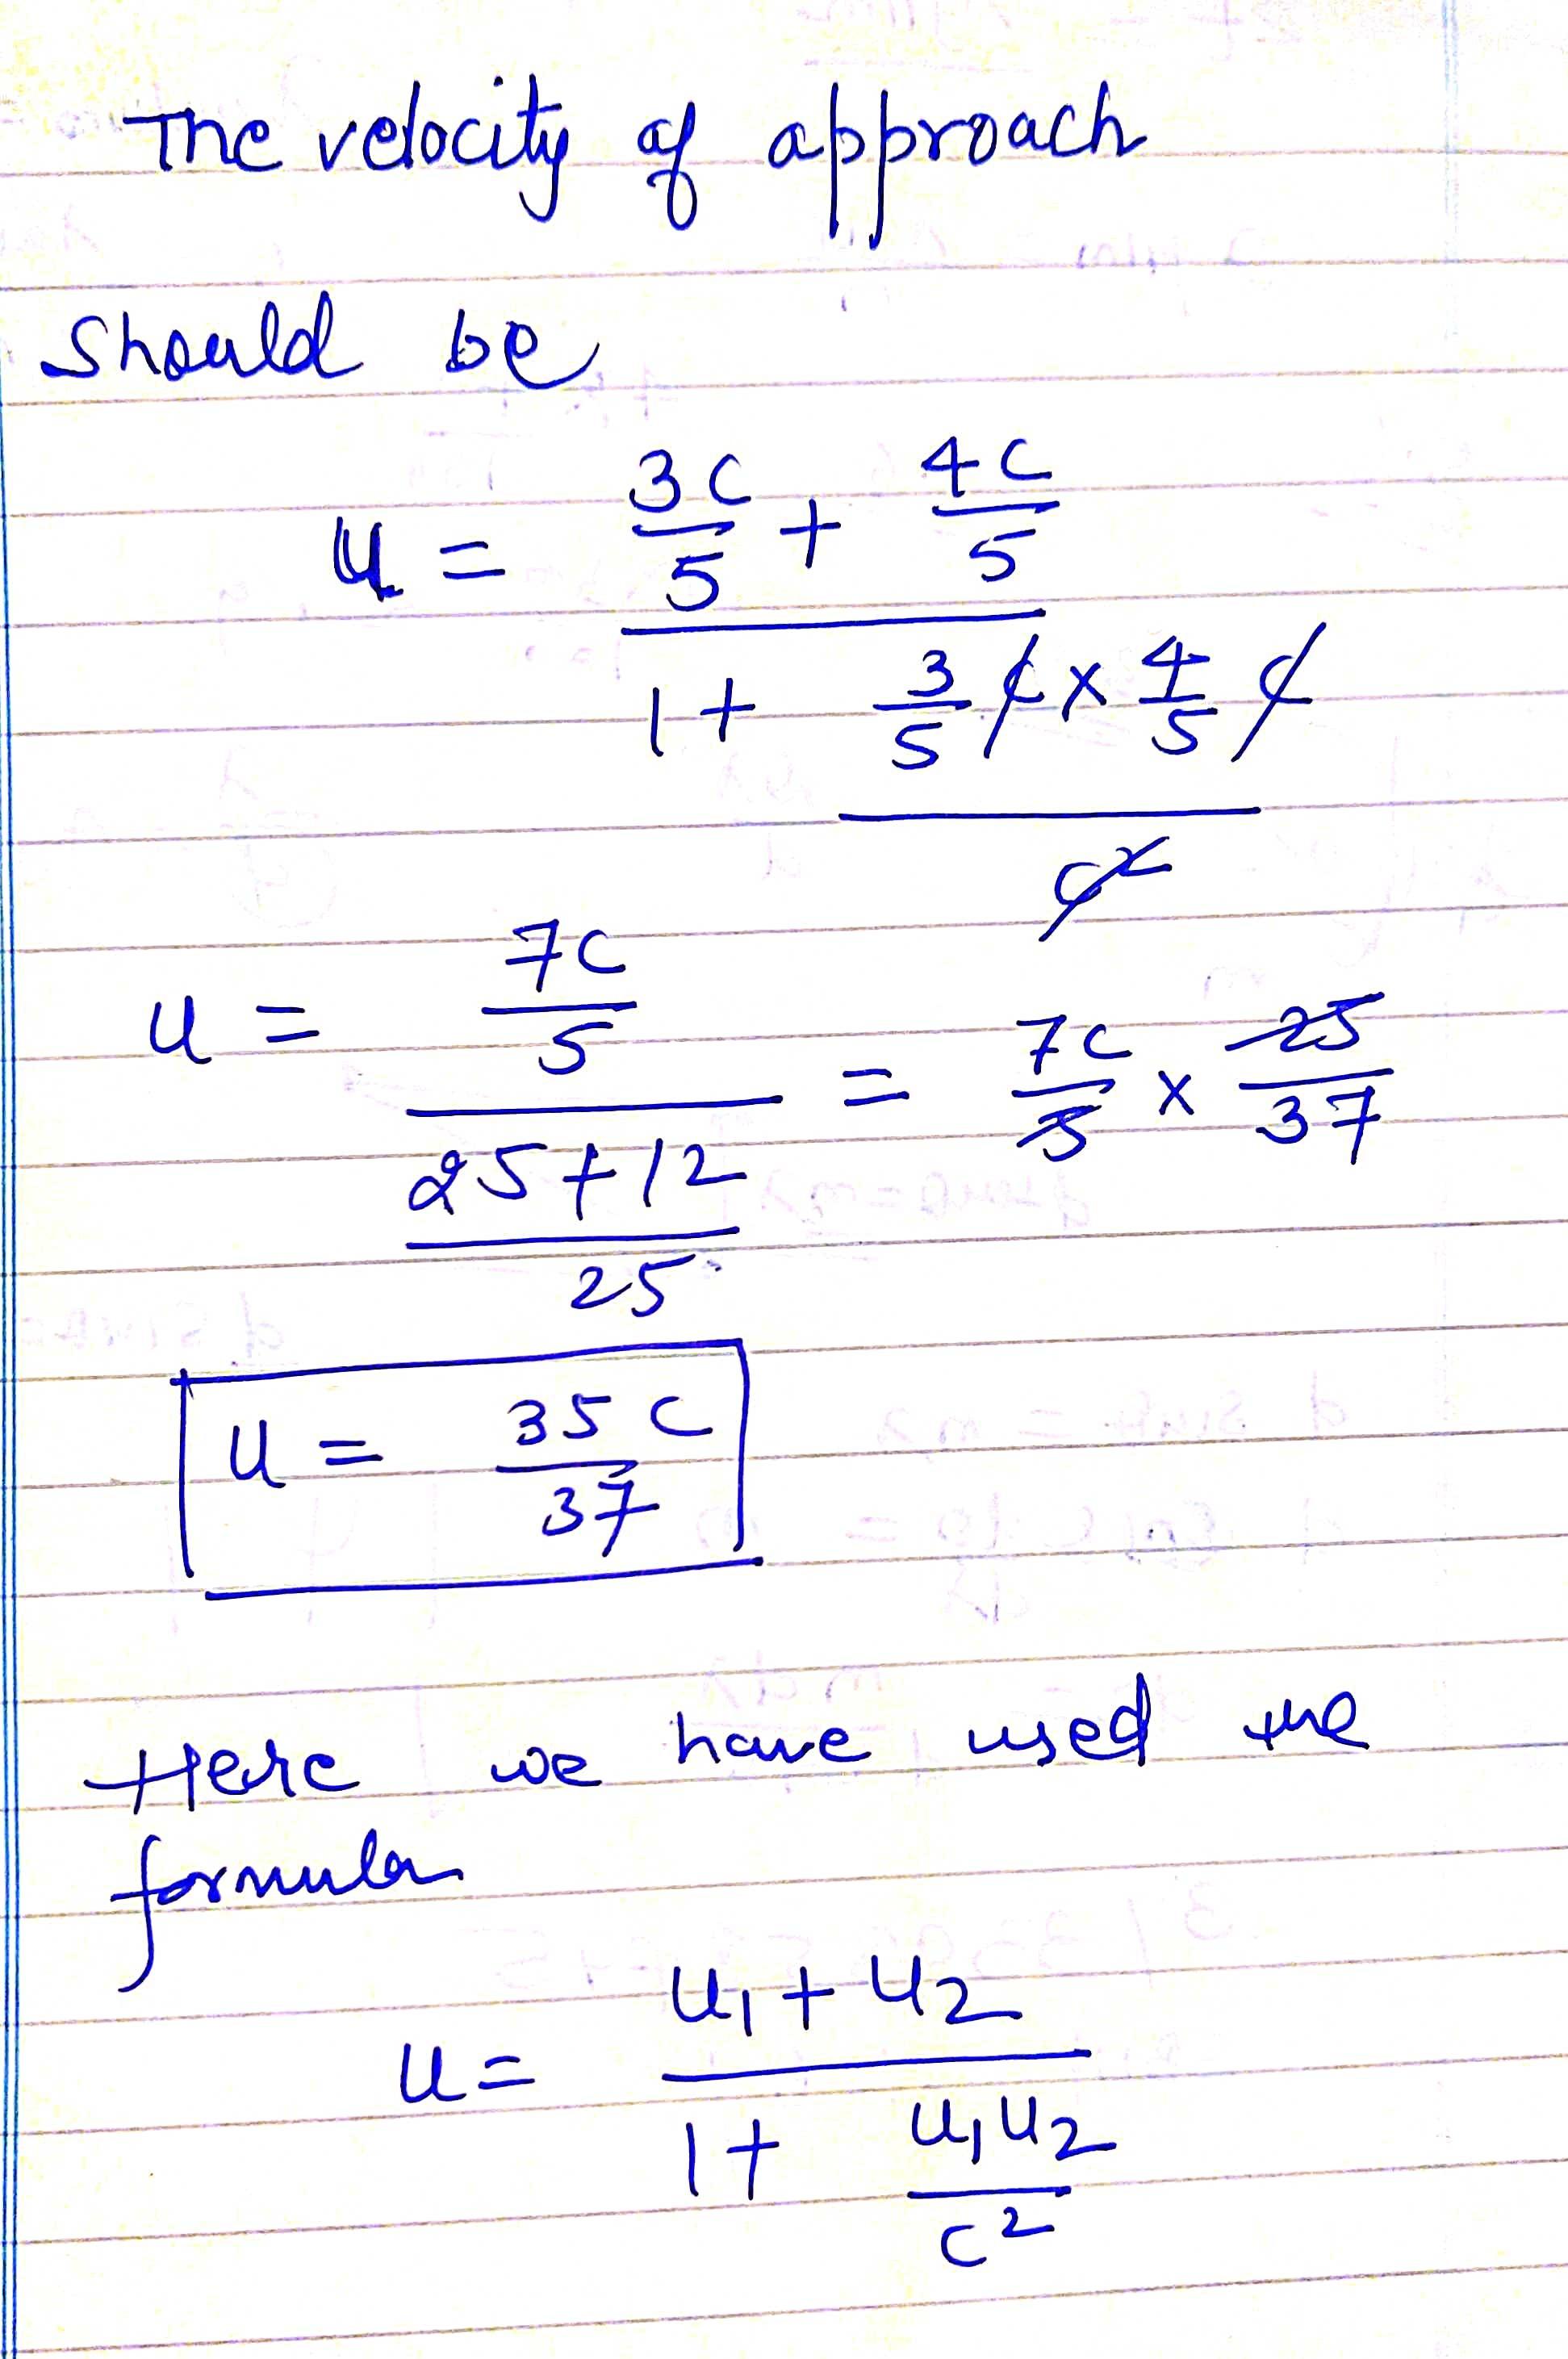 The velocity of approach
should be
u = (3c/5 + 4c/5) / (1 + (3/5 c × 4/5 c)/c²)
u = (7c/5) / ((25+12)/25) = 7c/5 × 25/37
u = 35c/37
Here we have used the
formula
u = (u₁ + u₂) / (1 + u₁u₂/c²)